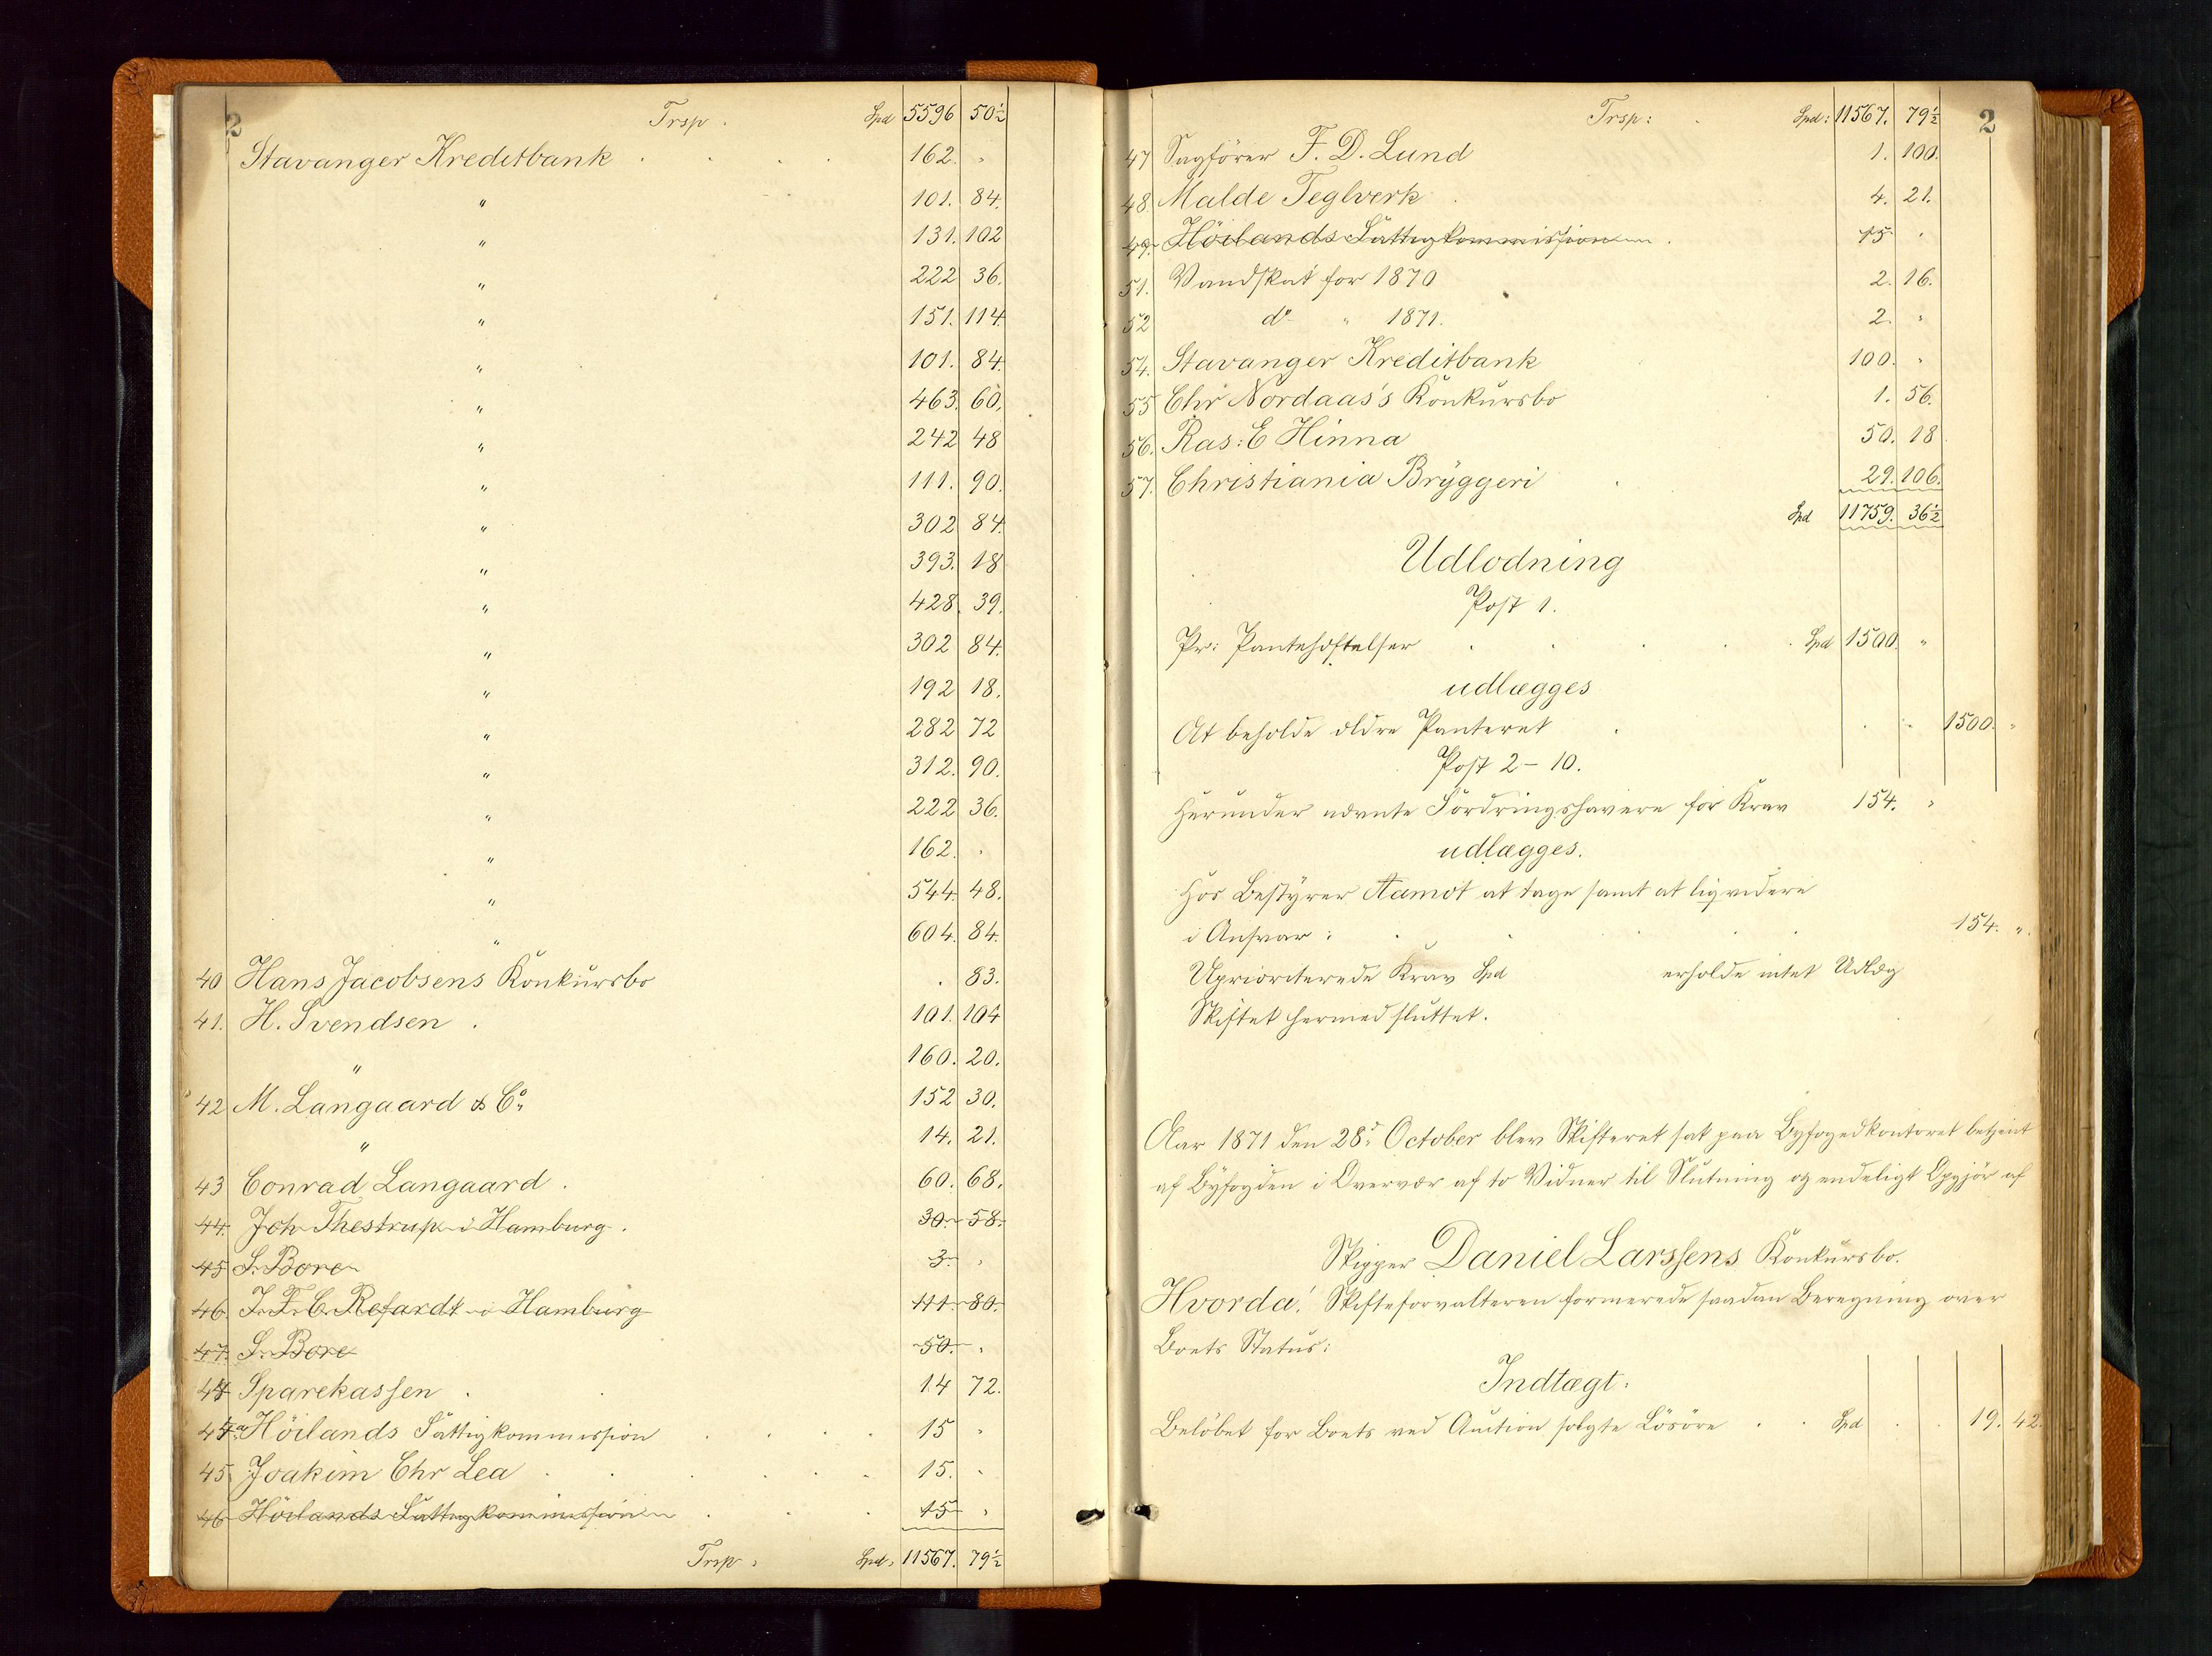 2
Trsp. Spd 5596 50½
Stavanger Kreditbank 162. "
" 101. 84.
" 131. 102
" 222 36.
" 151. 114.
" 101. 84.
" 463. 60.
" 242 48
" 111. 90.
" 302 84.
" 393. 18
" 428. 39.
" 302 84.
" 192 18.
" 282 72
" 312. 90.
" 222 36.
" 162. "
" 544. 48.
" 604. 84.
40 Hans Jacobsens Konkursbo . 83.
41. H. Svendsen . 101. 104
" 160. 20.
42 M. Langaard & Co. 152 30.
" 14. 21.
43 Conrad Langaard . 60. 68.
44. Joh Thestrup i Hamburg . 30. 58.
45 S. Bore 3 "
46. J. F. C. Refardt i Hamburg 111. 80.
47. S. Bore 50. "
44 Sparekassen . 14 72.
Höilands Fattigkommission 15 "
45 Joakim Chr Lea 15. "
46 Höilands Fattigkommission 15 "
Trsp: Spd. 11567. 79½
Trsp: Spd: 11567. 79½ 2
47 Sagförer F. D. Lund 1. 100.
48. Malde Teglverk 4. 21.
49. Höilands Fattigkommission 15 "
51. Vandskat for 1870 2. 16.
52 do " 1871. 2. "
54. Stavanger Kreditbank 100. "
55 Chr Nordaas's Konkursbo 1. 56.
56. Ras: E Hinna 50. 18
57. Christiania Bryggeri 29. 106.
Spd 11759. 36½
Udlodning
Post 1.
Pr: Panteheftelser Spd 1500. "
udlægges
At beholde ældre Panteret 1500. "
Post 2-10.
Herunder nævnte Fordringshavere for Krav 154. "
udlægges.
Hos Bestyrer Aamot at tage samt at liqvidere
i Ansvar: 154. ".
Uprioriterede Krav Spd erholde intet Udlæg
Skiftet hermed sluttet.
Aar 1871 den 28de October blev Skifteret sat paa Byfogedkontoret betjent
af Byfogden i Overvær af to Vidner til Slutning og endeligt Opgjör af
Skipper Daniel Larssens Konkursbo.
Hvorda! Skifteforvalteren formerede saadan Beregning over
Boets Status:
Indtægt:
Belöbet for Boets ved Auction solgte Lösöre Spd 19. 42.